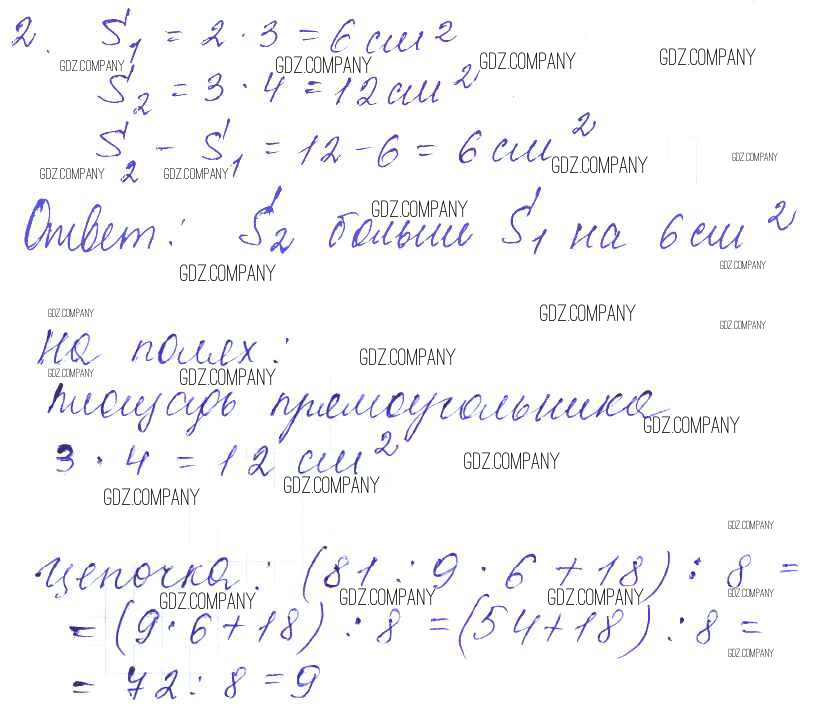 2. S₁ = 2 · 3 = 6 см²
GDZ.COMPANY GDZ.COMPANY GDZ.COMPANY GDZ.COMPANY
S₂ = 3 · 4 = 12 см²
S₂ - S₁ = 12 - 6 = 6 см²
GDZ.COMPANY GDZ.COMPANY GDZ.COMPANY GDZ.COMPANY
Ответ: S₂ больше S₁ на 6 см²
GDZ.COMPANY
GDZ.COMPANY GDZ.COMPANY
GDZ.COMPANY GDZ.COMPANY GDZ.COMPANY
На полях: GDZ.COMPANY
GDZ.COMPANY GDZ.COMPANY
площадь прямоугольника
GDZ.COMPANY
3 · 4 = 12 см² GDZ.COMPANY
GDZ.COMPANY GDZ.COMPANY
GDZ.COMPANY
Цепочка: (81 : 9 · 6 + 18) : 8 =
GDZ.COMPANY GDZ.COMPANY GDZ.COMPANY GDZ.COMPANY
= (9 · 6 + 18) : 8 = (54 + 18) : 8 =
GDZ.COMPANY
= 72 : 8 = 9